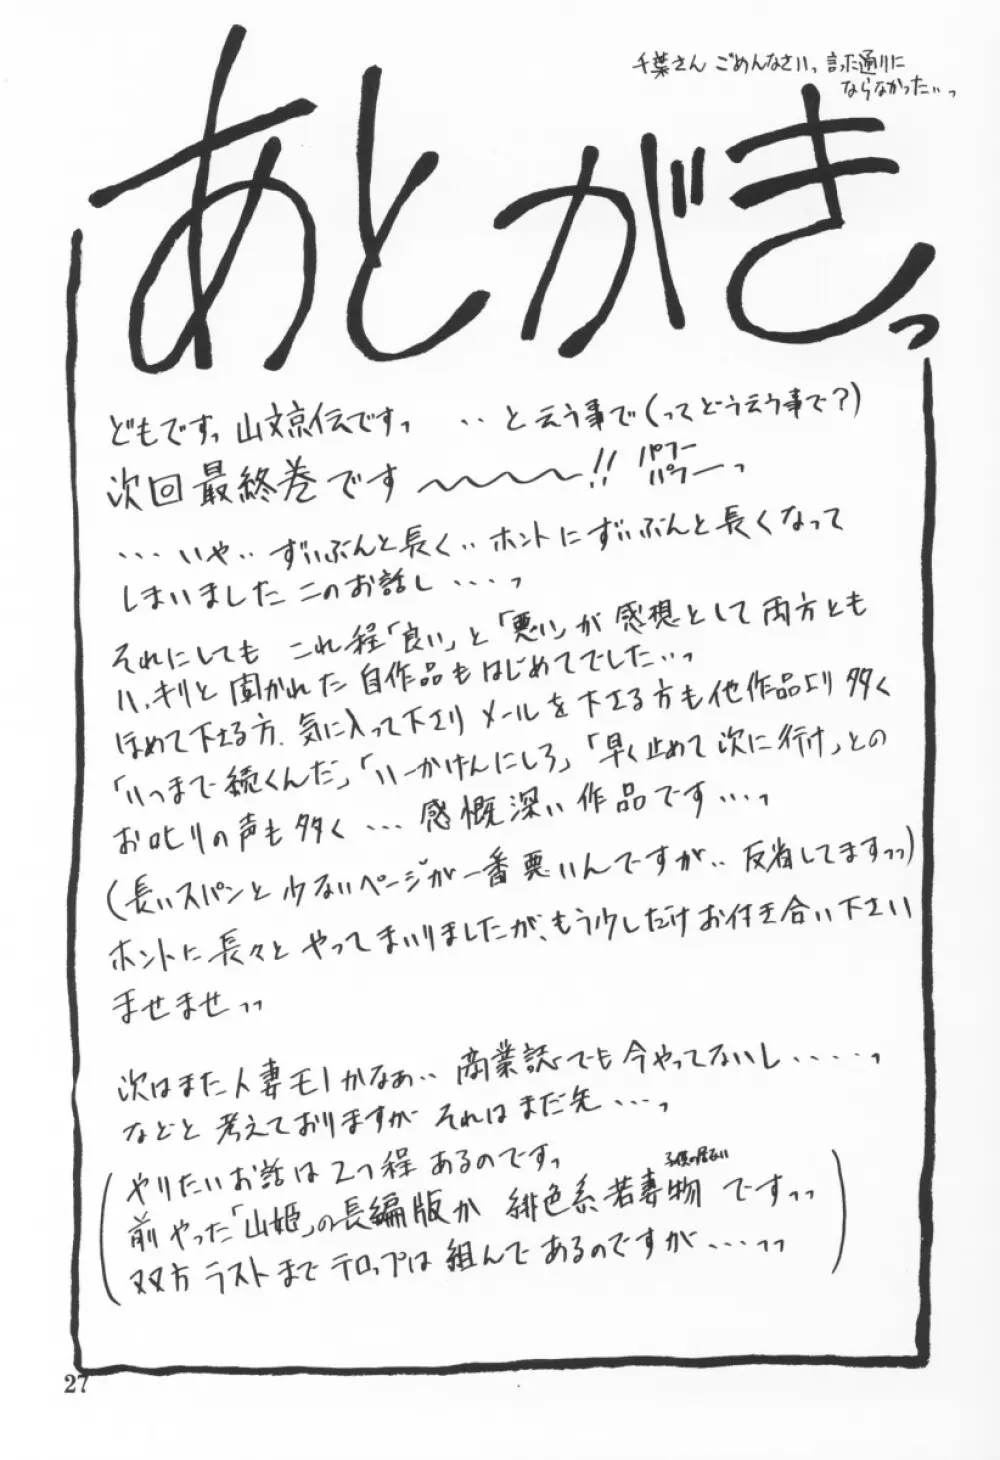 千葉さん ごめんなさいっ 言った通りに
ならなかったぃっ
あとがきっ
どもですっ 山文京伝ですっ ‥と云う事で(ってどう云う事で?)
次回最終巻です〜〜〜〜!! パフー パフーっ
…いや‥ずいぶんと長く‥ホントにずいぶんと長くなって
しまいましたこのお話し…っ
それにしても これ程「良い」と「悪い」が感想として両方とも
ハッキリと聞かれた自作品もはじめてでした…っ
ほめて下さる方、気に入って下さり メールを下さる方も他作品より多く
「いつまで続くんだ」「いーかげんにしろ」「早く止めて次に行け」との
お叱りの声も多く…感慨深い作品です…っ
(長いスパンと少ないページが一番悪いんですが‥反省してますっっ)
ホントに長々とやってまいりましたが、もう少しだけお付き合い下さい
ませませっっ
次はまた人妻モノかなぁ‥商業誌でも今やってないし……っ
などと考えておりますが それはまだ先…っ
やりたいお話は2つ程あるのですっ
子供の居ない
(前やった「山姫」の長編版か 緋色系若妻物ですっっ
双方ラストまでプロップは組んであるのですが…っっ)
27